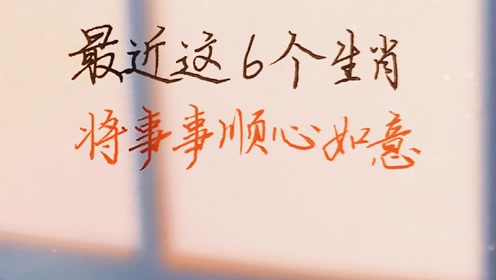 最近这6个生肖
将事事顺心如意